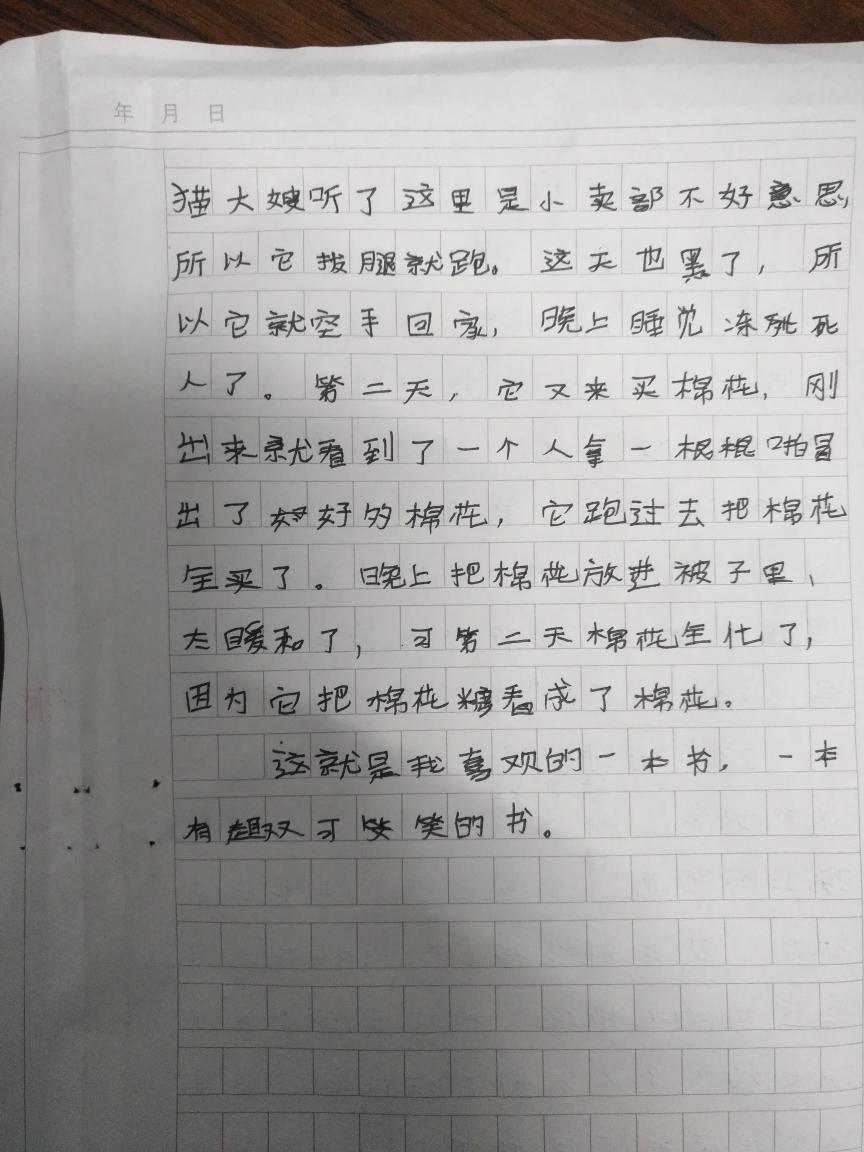 年 月 日
猫大嫂听了这里是小卖部不好意思,
所以它拔腿就跑。这天也黑了,所
以它就空手回家,晚上睡觉冻死
人了。第二天,它又来买棉花,刚
出来就看到了一个人拿一根棍啪冒
出了好好的棉花,它跑过去把棉花
全买了。晚上把棉花放进被子里,
太暖和了,可第二天棉花全化了,
因为它把棉花糖看成了棉花。
这就是我喜欢的一本书,一本
有趣又可笑的书。